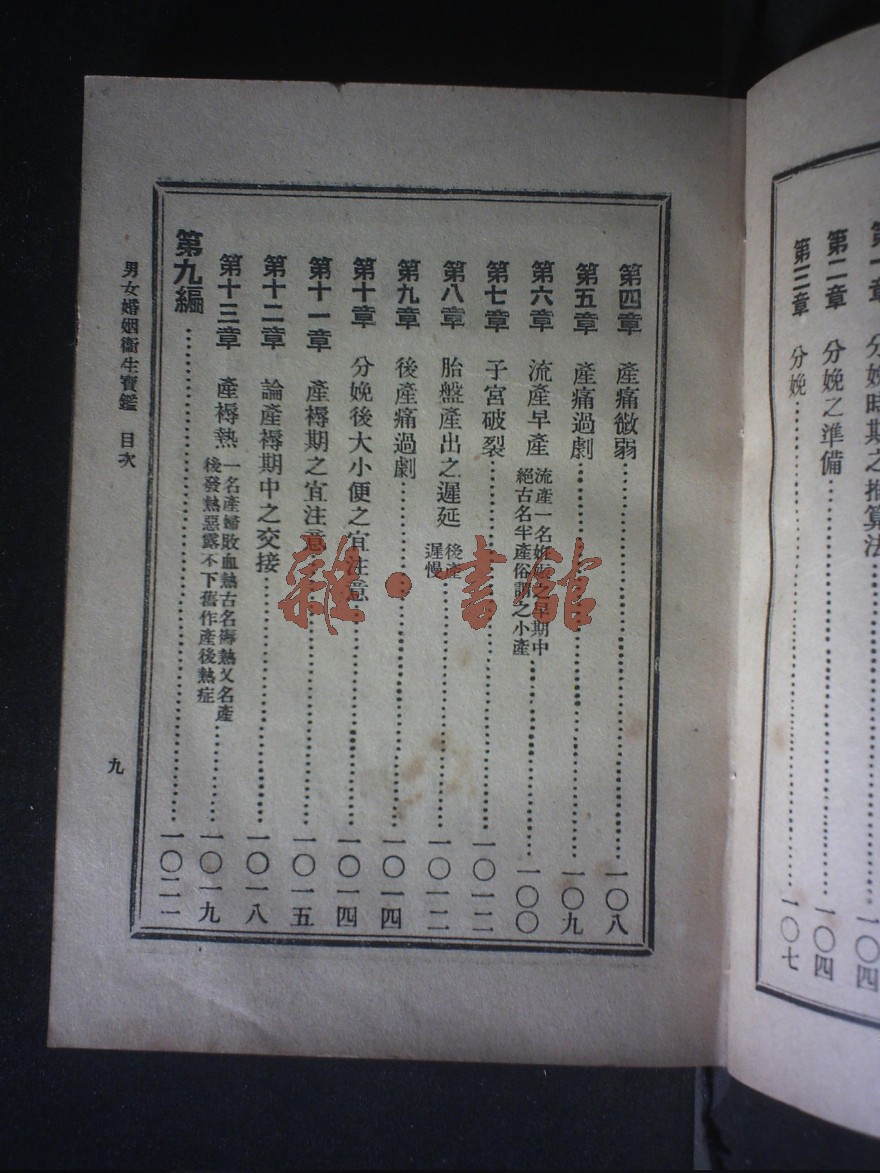 第一章 分娩時期之推算法 一〇四
第二章 分娩之準備 一〇四
第三章 分娩 一〇七
第四章 產痛微弱 一〇八
第五章 產痛過劇 一〇九
第六章 流產早產 流產一名妊娠之早期中
絕古名半產俗謂之小產 一〇〇
第七章 子宮破裂 一〇一二
第八章 胎盤產出之遲延 後產
遲慢 一〇一二
第九章 後產痛過劇 一〇一四
第十章 分娩後大小便之宜注意 一〇一四
第十一章 產褥期之宜注意 一〇一五
第十二章 論產褥期中之交接 一〇一八
第十三章 產褥熱 一名產婦敗血熱古名海熱又名產
後發熱惡露不下舊作產後熱症 一〇一九
第九編 一〇二一
男女婚姻衞生寶鑑 目次
九
雜·書館